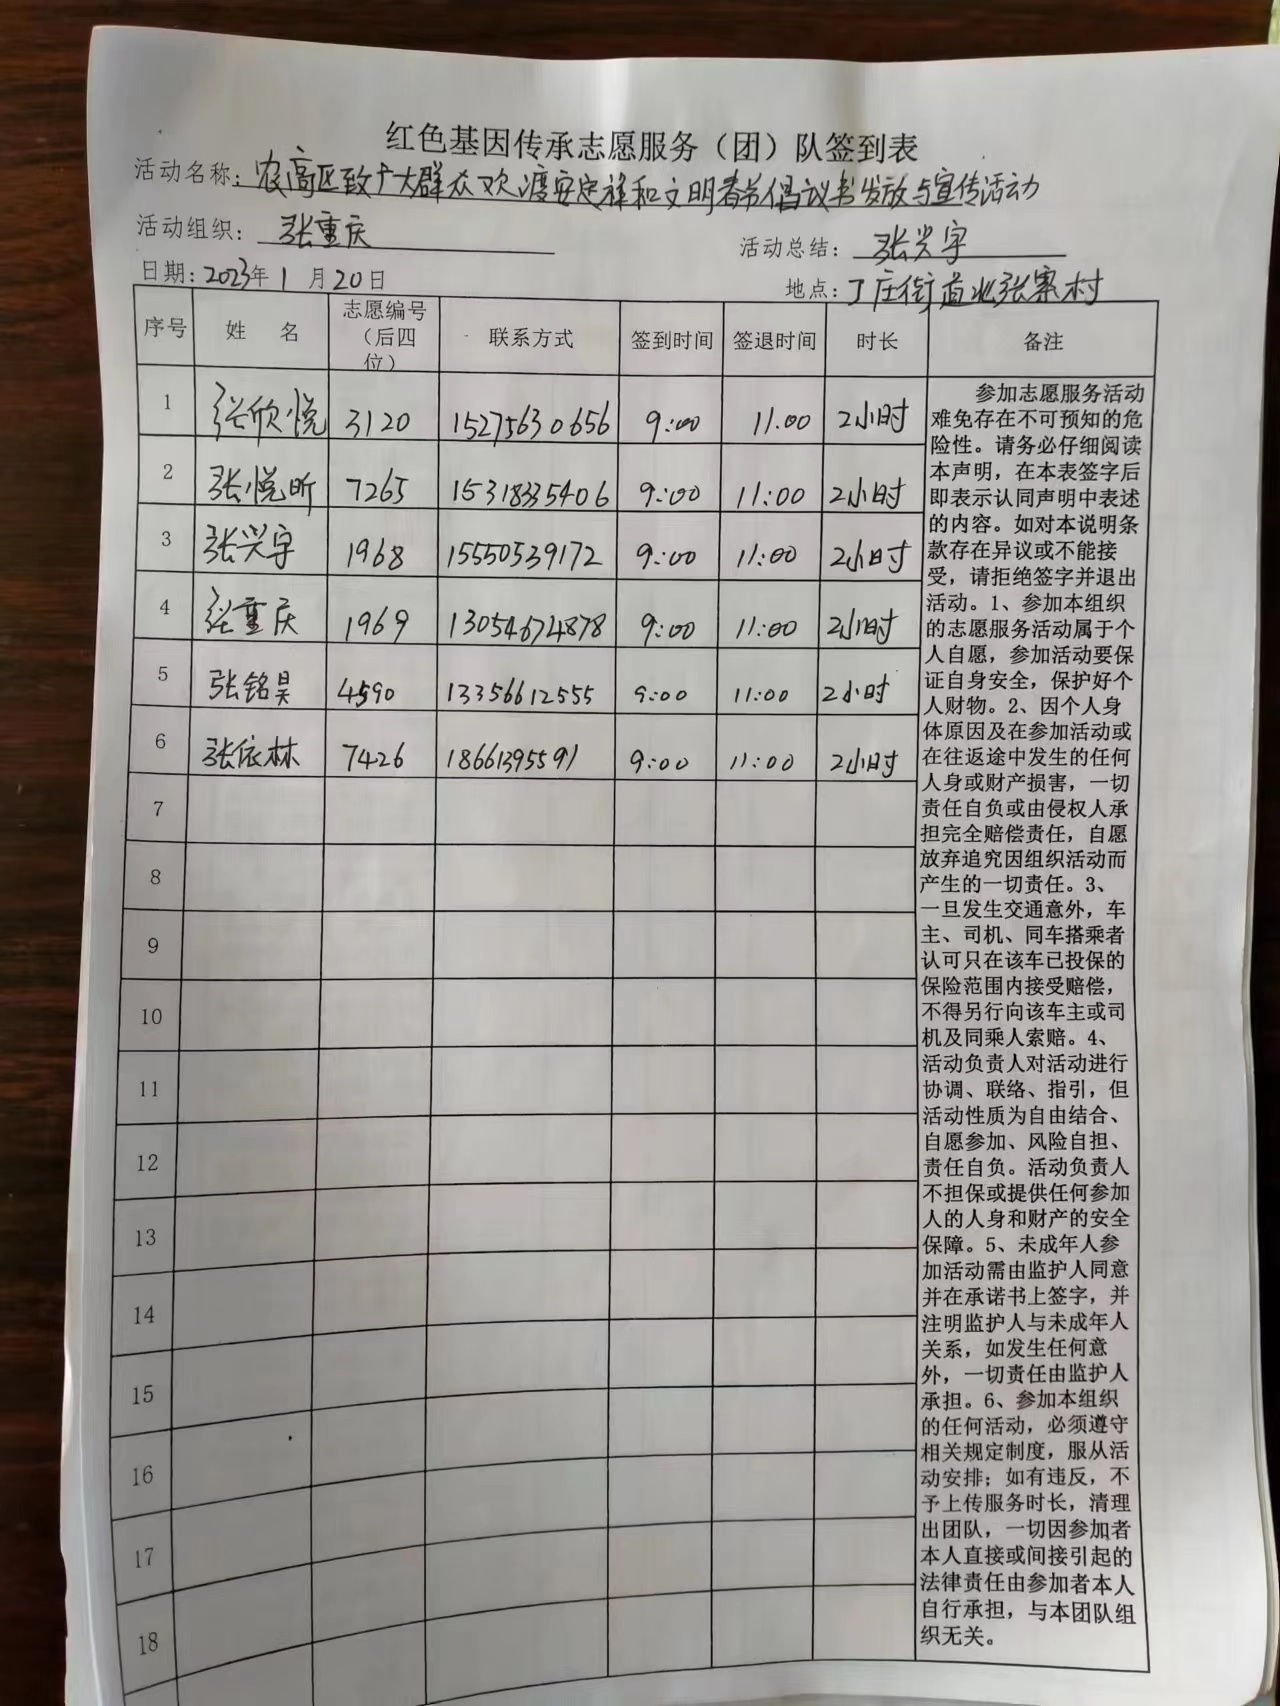 红色基因传承志愿服务（团）队签到表
活动名称：农高区致广大群众欢渡安定祥和文明春节倡议书发放与宣传活动
活动组织：张重庆 活动总结：张兴宇
日期：2023年1月20日 地点：丁庄街道北张寨村
序号 姓 名 志愿编号（后四位） 联系方式 签到时间 签退时间 时长 备注
1 张欣悦 3120 15275630656 9:00 11:00 2小时
2 张悦昕 7265 15318335406 9:00 11:00 2小时
3 张兴宇 1968 15550539172 9:00 11:00 2小时
4 张重庆 1969 13054674878 9:00 11:00 2小时
5 张铭昊 4590 13356612555 9:00 11:00 2小时
6 张依林 7426 18661395591 9:00 11:00 2小时
7
8
9
10
11
12
13
14
15
16
17
18
参加志愿服务活动
难免存在不可预知的危
险性。请务必仔细阅读
本声明，在本表签字后
即表示认同声明中表述
的内容。如对本说明条
款存在异议或不能接
受，请拒绝签字并退出
活动。1、参加本组织
的志愿服务活动属于个
人自愿，参加活动要保
证自身安全，保护好个
人财物。2、因个人身
体原因及在参加活动或
在往返途中发生的任何
人身或财产损害，一切
责任自负或由侵权人承
担完全赔偿责任，自愿
放弃追究因组织活动而
产生的一切责任。3、
一旦发生交通意外，车
主、司机、同车搭乘者
认可只在该车已投保的
保险范围内接受赔偿，
不得另行向该车主或司
机及同乘人索赔。4、
活动负责人对活动进行
协调、联络、指引，但
活动性质为自由结合、
自愿参加、风险自担、
责任自负。活动负责人
不担保或提供任何参加
人的人身和财产的安全
保障。5、未成年人参
加活动需由监护人同意
并在承诺书上签字，并
注明监护人与未成年人
关系，如发生任何意
外，一切责任由监护人
承担。6、参加本组织
的任何活动，必须遵守
相关规定制度，服从活
动安排；如有违反，不
予上传服务时长，清理
出团队，一切因参加者
本人直接或间接引起的
法律责任由参加者本人
自行承担，与本团队组
织无关。